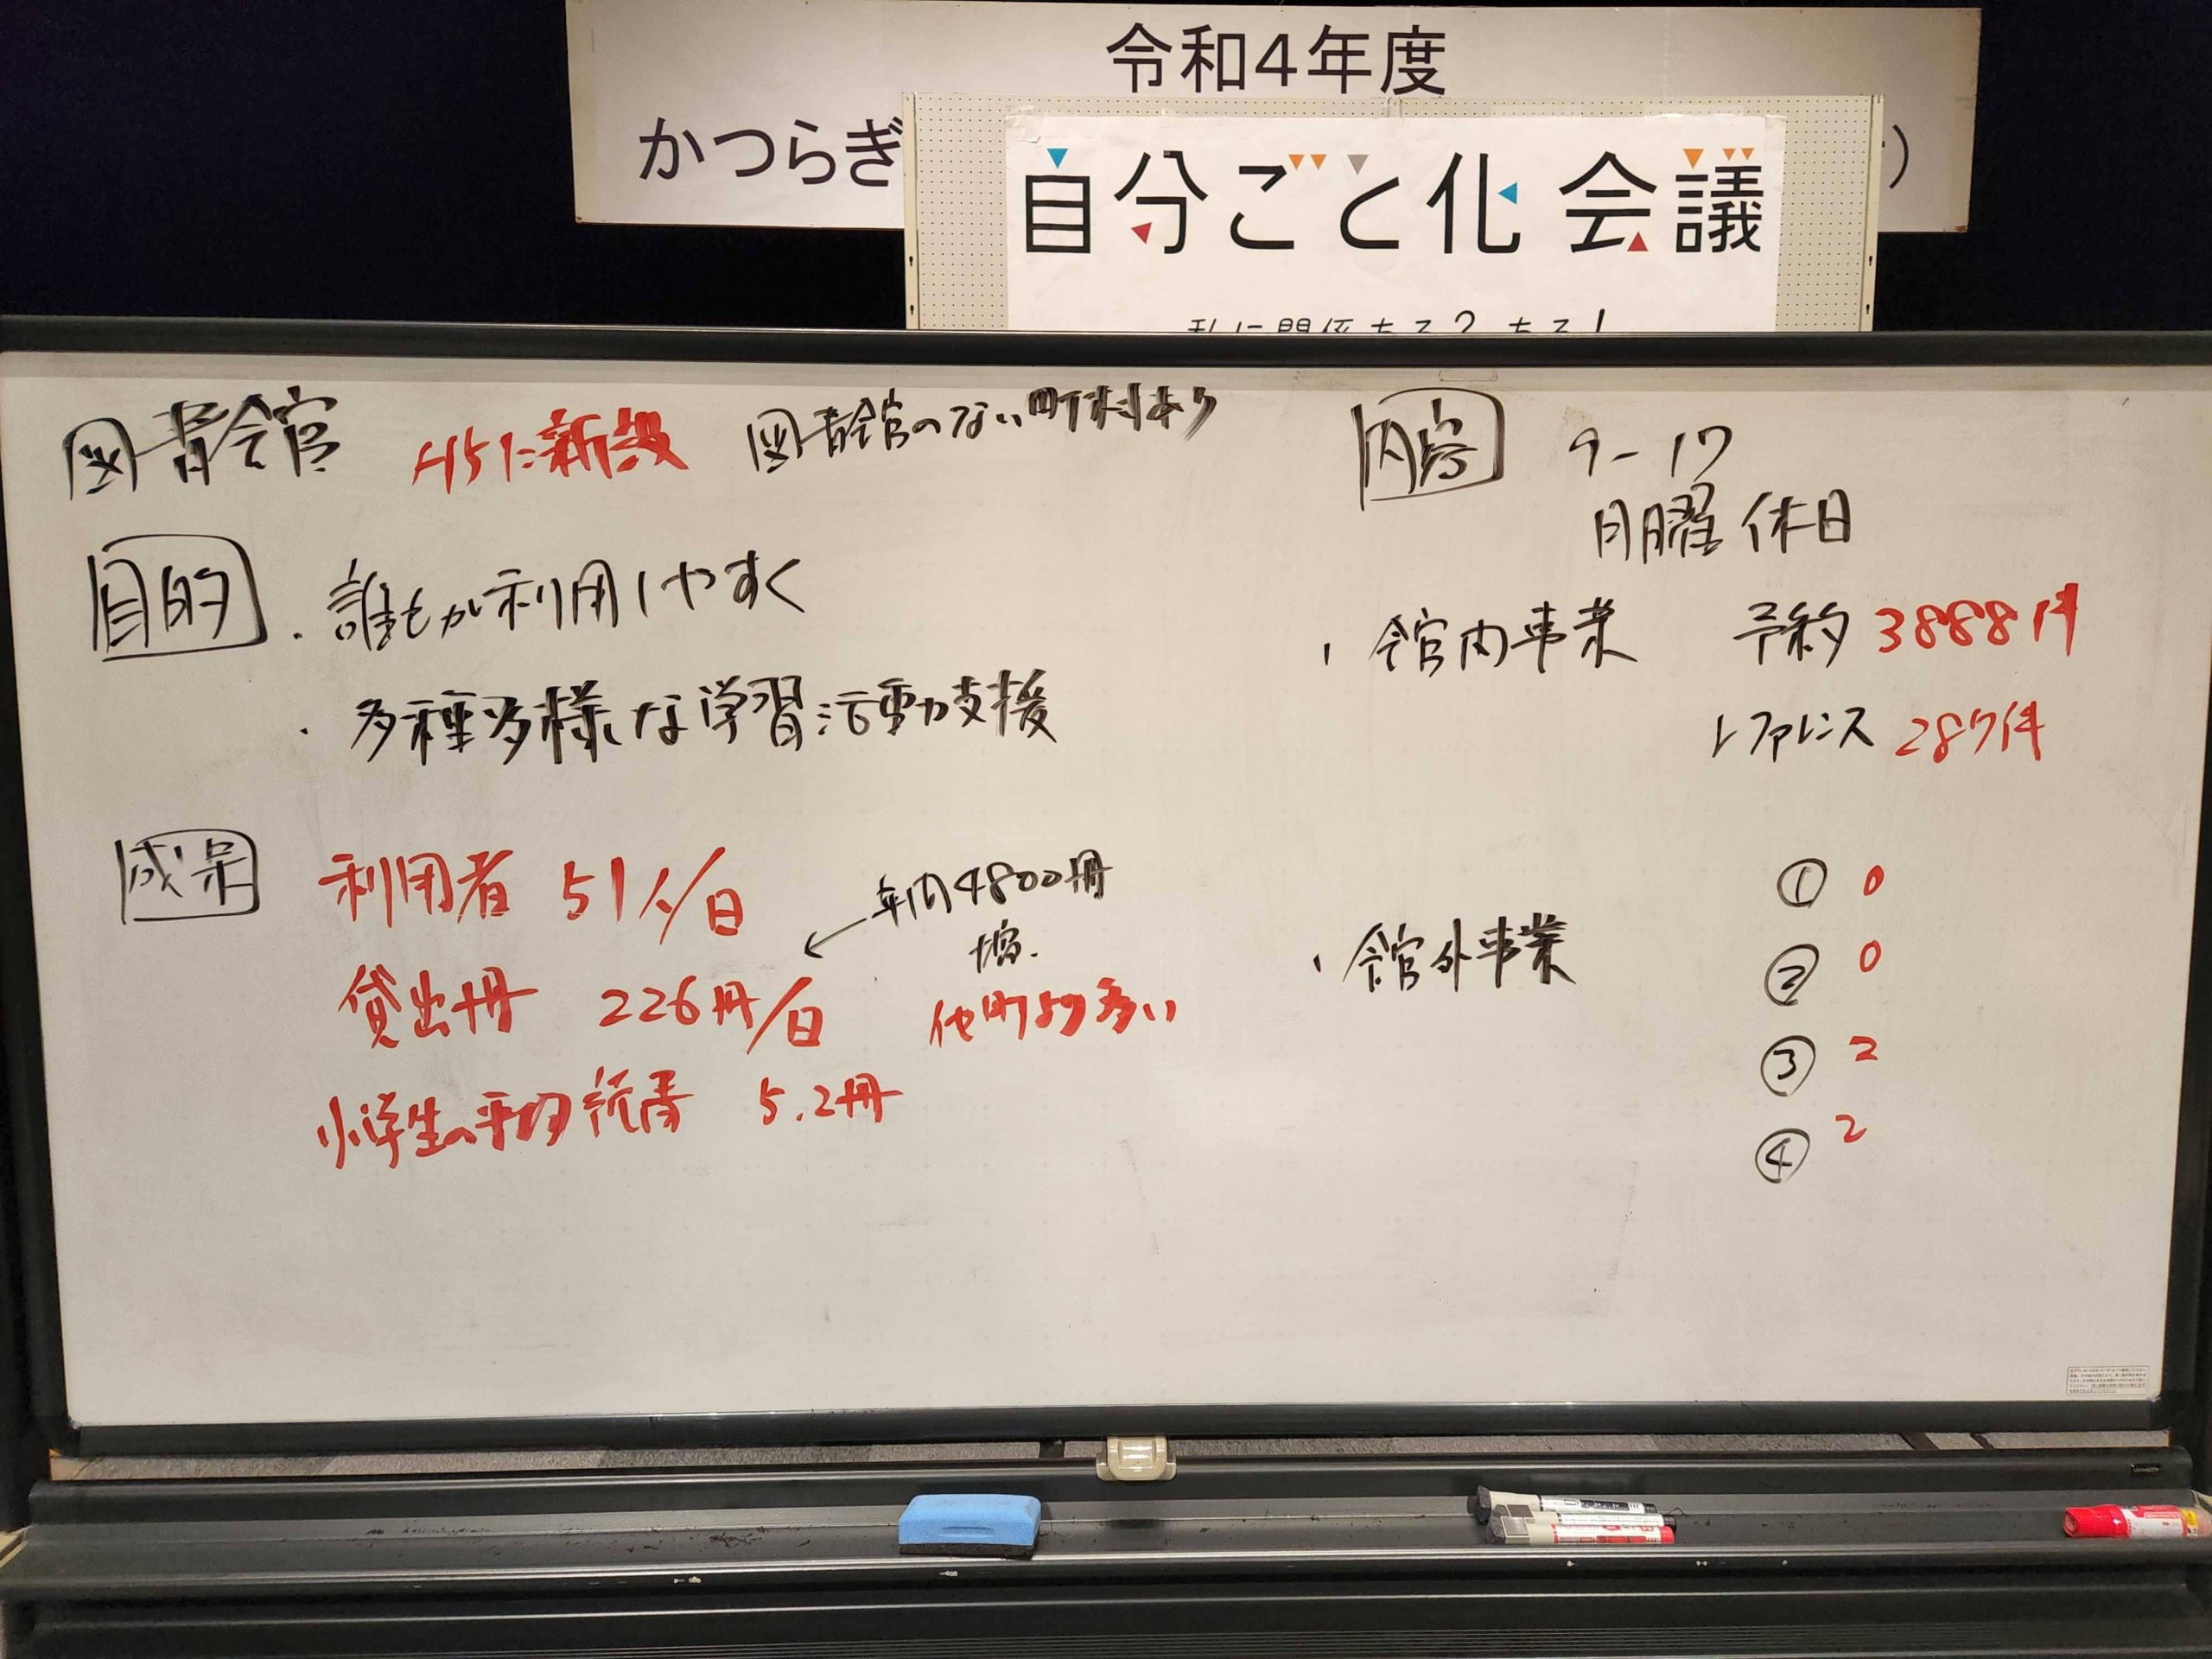 令和4年度
かつらぎ
）
自分ごと化会議
私に関係ある？ある！
図書館 H5に新設 図書館のない町村あり
目的 ・誰もが利用しやすく
・多種多様な学習活動支援
成果 利用者 51人/日
貸出冊 226冊/日 ← 年間4800冊
増.
他町より多い
小学生の平均読書 5.2冊
内容 9-17
月曜休日
・館内事業 予約 3888件
レファレンス 287件
・館外事業
① 0
② 0
③ 2
④ 2